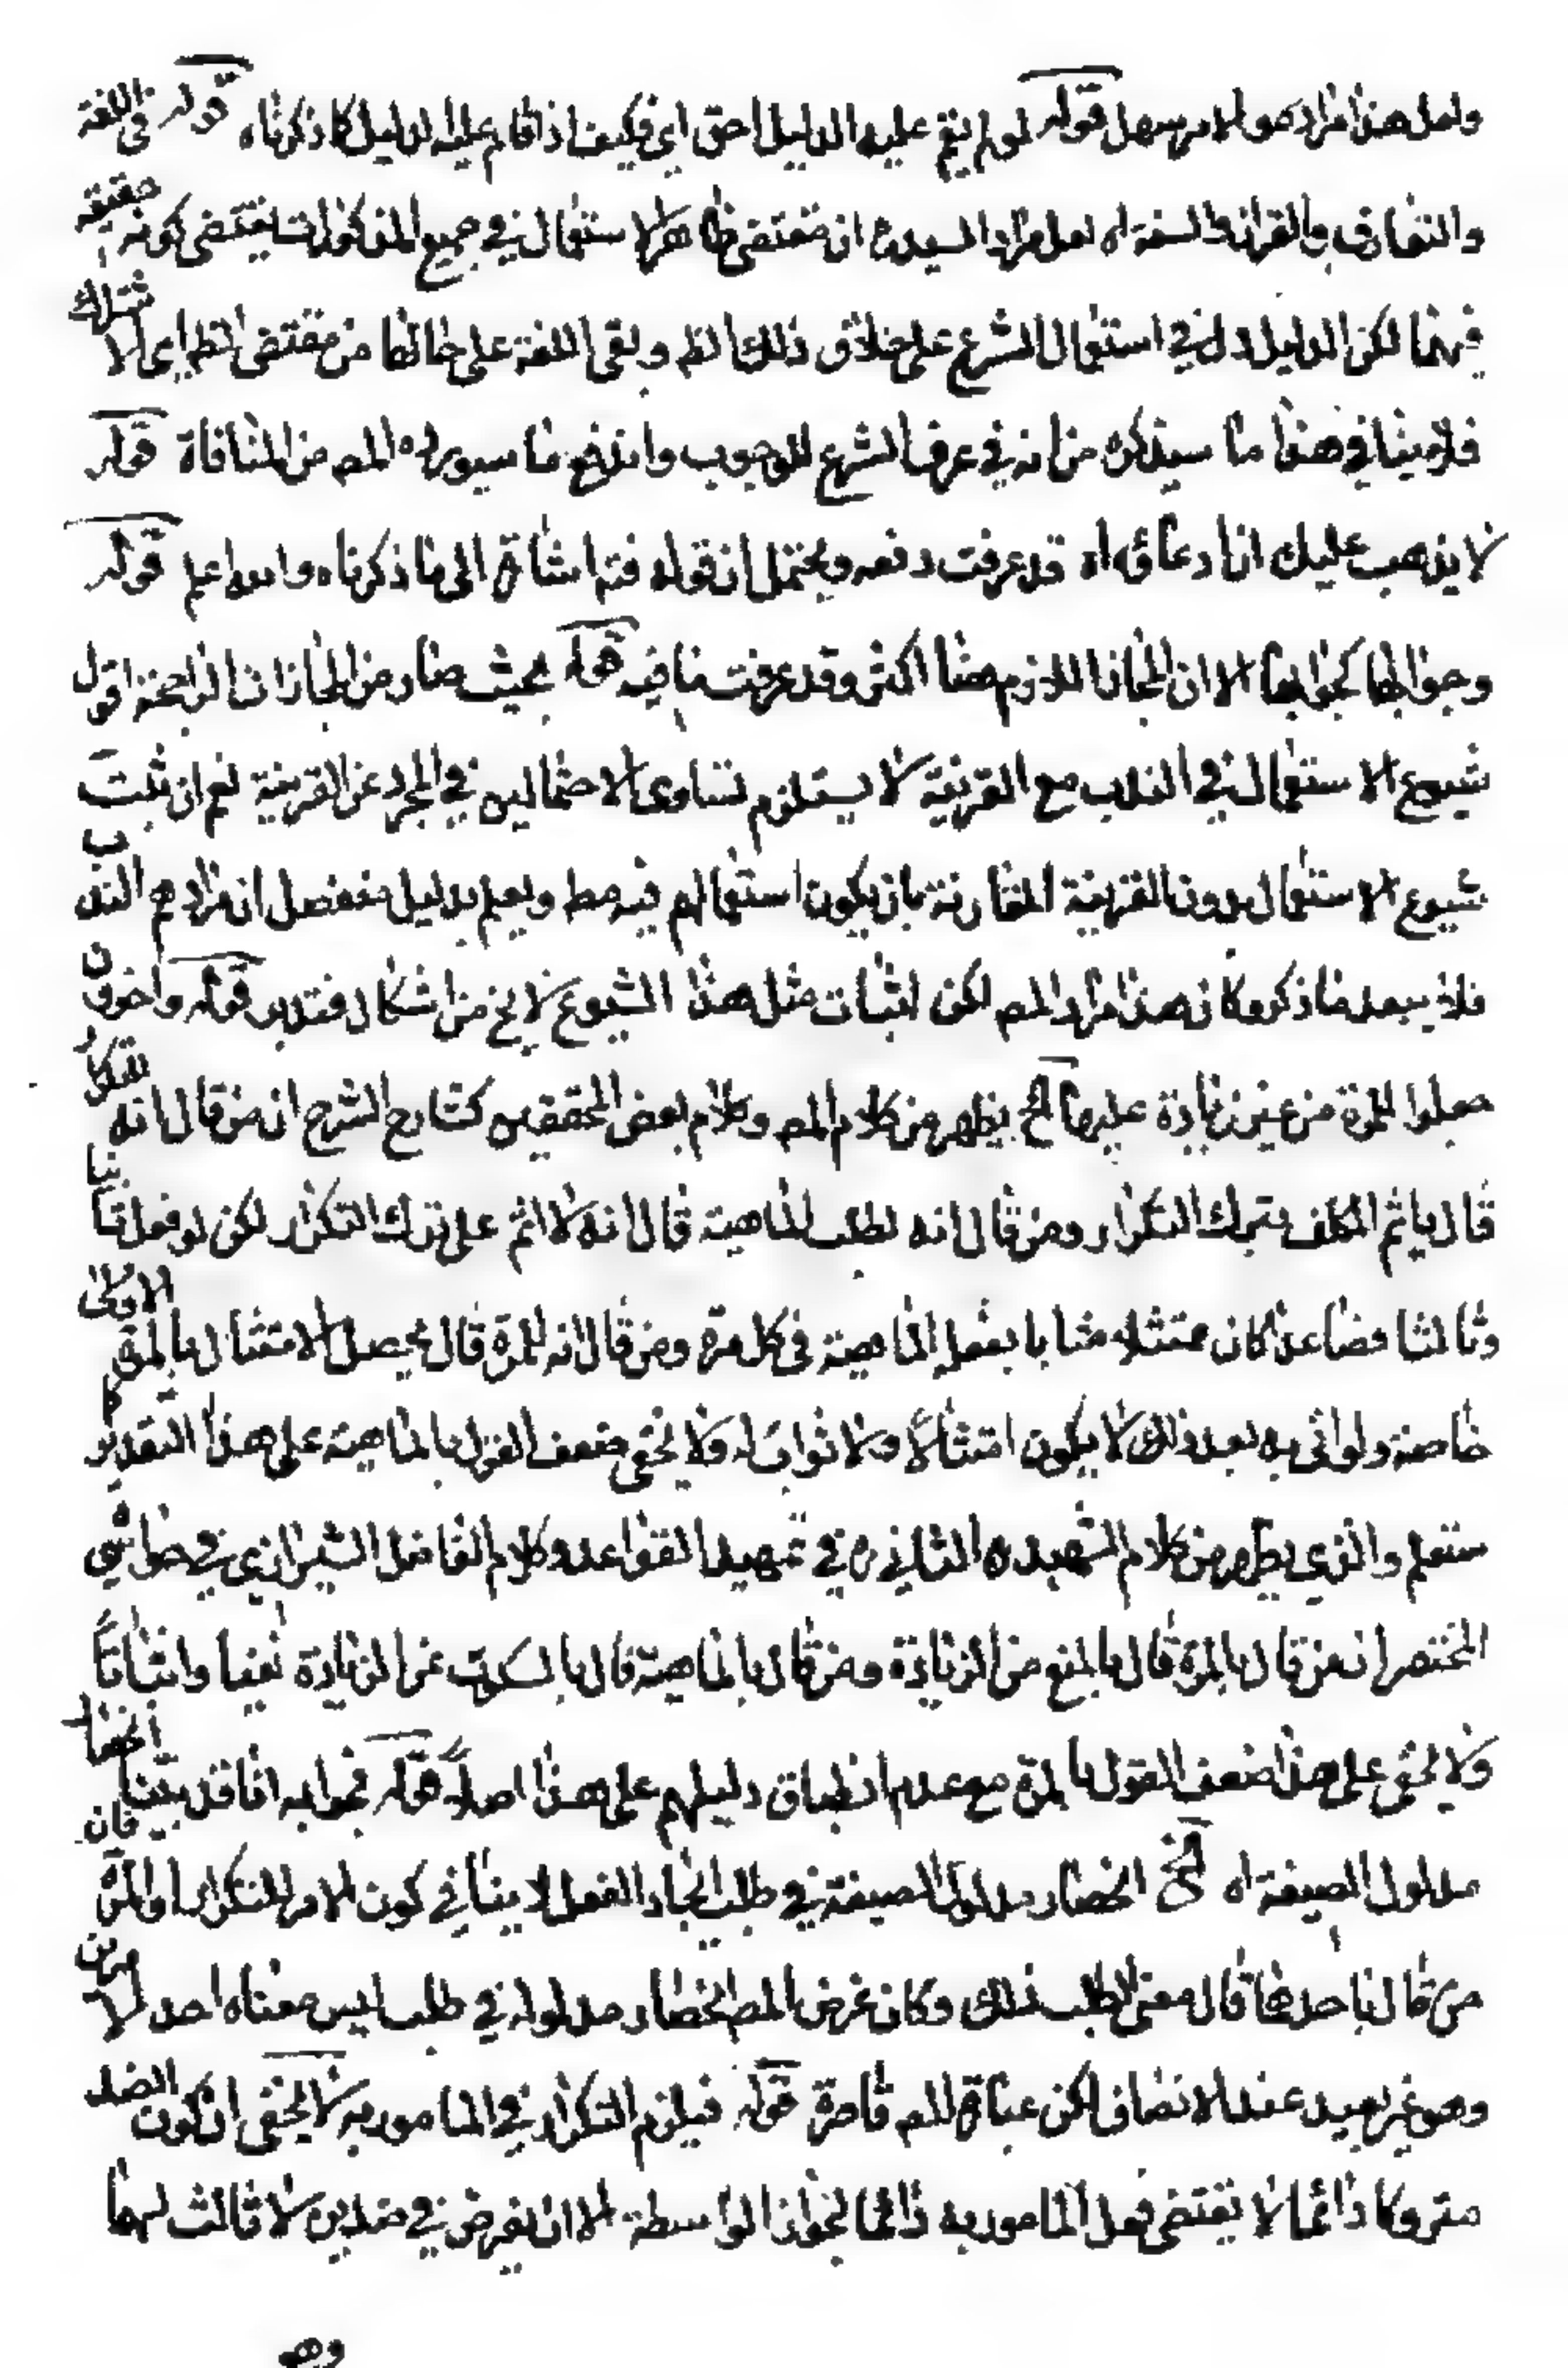 ولعل هذا مراده والامر سهل قوله لو لم يقم عليه الدليل احق اي فكيف اذا قام عليه الدليل كما ذكرناه قوله في اللغة
والتعارف والقران والسنة اه لعل مراد السيد ره ان مقتضى ظاهر الاستعمال في جميع المذكورات يقتضى كونه حقيقة
فيهما لكن الدليل دل في استعمال الشرع على خلاف ذلك الظ وبقى اللغة على حالها من مقتضى الظ اى الاشتراك
فلا ينافي هذا ما سيذكره من انه في عرف الشرع للوجوب واندفع ما سيورده المص من المنافاة قوله
لا يذهب عليك ان ادعائه اه قد عرفت دفعه ويحتمل ان قوله فته اشارة الى ما ذكرناه والله اعلم قوله
وجوابها كجوابها الا ان المجاز اللازم هنا اكثر وقد عرفت ما فيه قوله بحيث صار من المجازات الراجحة اقول
شيوع الاستعمال في الندب مع القرينة لا يستلزم تساوى الاحتمالين في المجرد عن القرينة نعم ان ثبت
شيوع الاستعمال بدون القرينة المقارنة بان يكون استعمالهم فيه مط ويعلم بدليل منفصل ان مرادهم الندب
فلا يبعد ما ذكره وكان هذا مراد المص لكن اثبات مثل هذا الشيوع لا يخ من اشكال فتدبر قوله واخرون
جعلوا للمرة من غير زيادة عليها الخ يظهر من كلام المص وكلام بعض المحققين كشارح الشرح ان من قال انه للتكرار
قال ياثم المكلف بترك التكرار ومن قال انه لطلب الماهية قال انه لا اثم على ترك التكرار لكن لو فعل ثانيا
وثالثا فصاعدا كان ممتثلا مثابا بفعل الماهية في كل مرة ومن قال انه للمرة قال يحصل الامتثال بالمرة الاولى
خاصة ولو اتى به بعد ذلك لا يكون امتثالا ولا ثواب له ولا يخفى ضعف القول بالماهية على هذا التقدير كما
ستعلم والذي يظهر من كلام الشهيد الثاني ره في تمهيد القواعد وكلام الفاضل الشيرازي في حواشي
المختصر انه من قال بالمرة قال بالمنع من الزيادة ومن قال بالماهية قال بالسكوت عن الزيادة نفيا واثباتا
ولا يخفى على هذا ضعف القول بالمرة مع عدم انطباق دليلهم على هذا اصلا قوله فجوابه انا قد بينا انحصار
مدلول الصيغة اه الخ انحصار مدلول الصيغة في طلب ايجاد الفعل لا ينافي كون الامر للتكرار او المرة فان
من قال باحدهما قال معنى الطلب ذلك وكان غرض المص انحصار مدلوله في طلب ليس معناه احد الامرين
وهو غير بعيد عند الانصاف لكن عبارة المص قاصرة قوله فيلزم التكرار في المامور به لا يخفى ان كون الضد
متروكا دائما لا يقتضى فعل المامور به دائما لجواز الواسطة الا ان يفرض في ضدين لا ثالث لهما
وهو